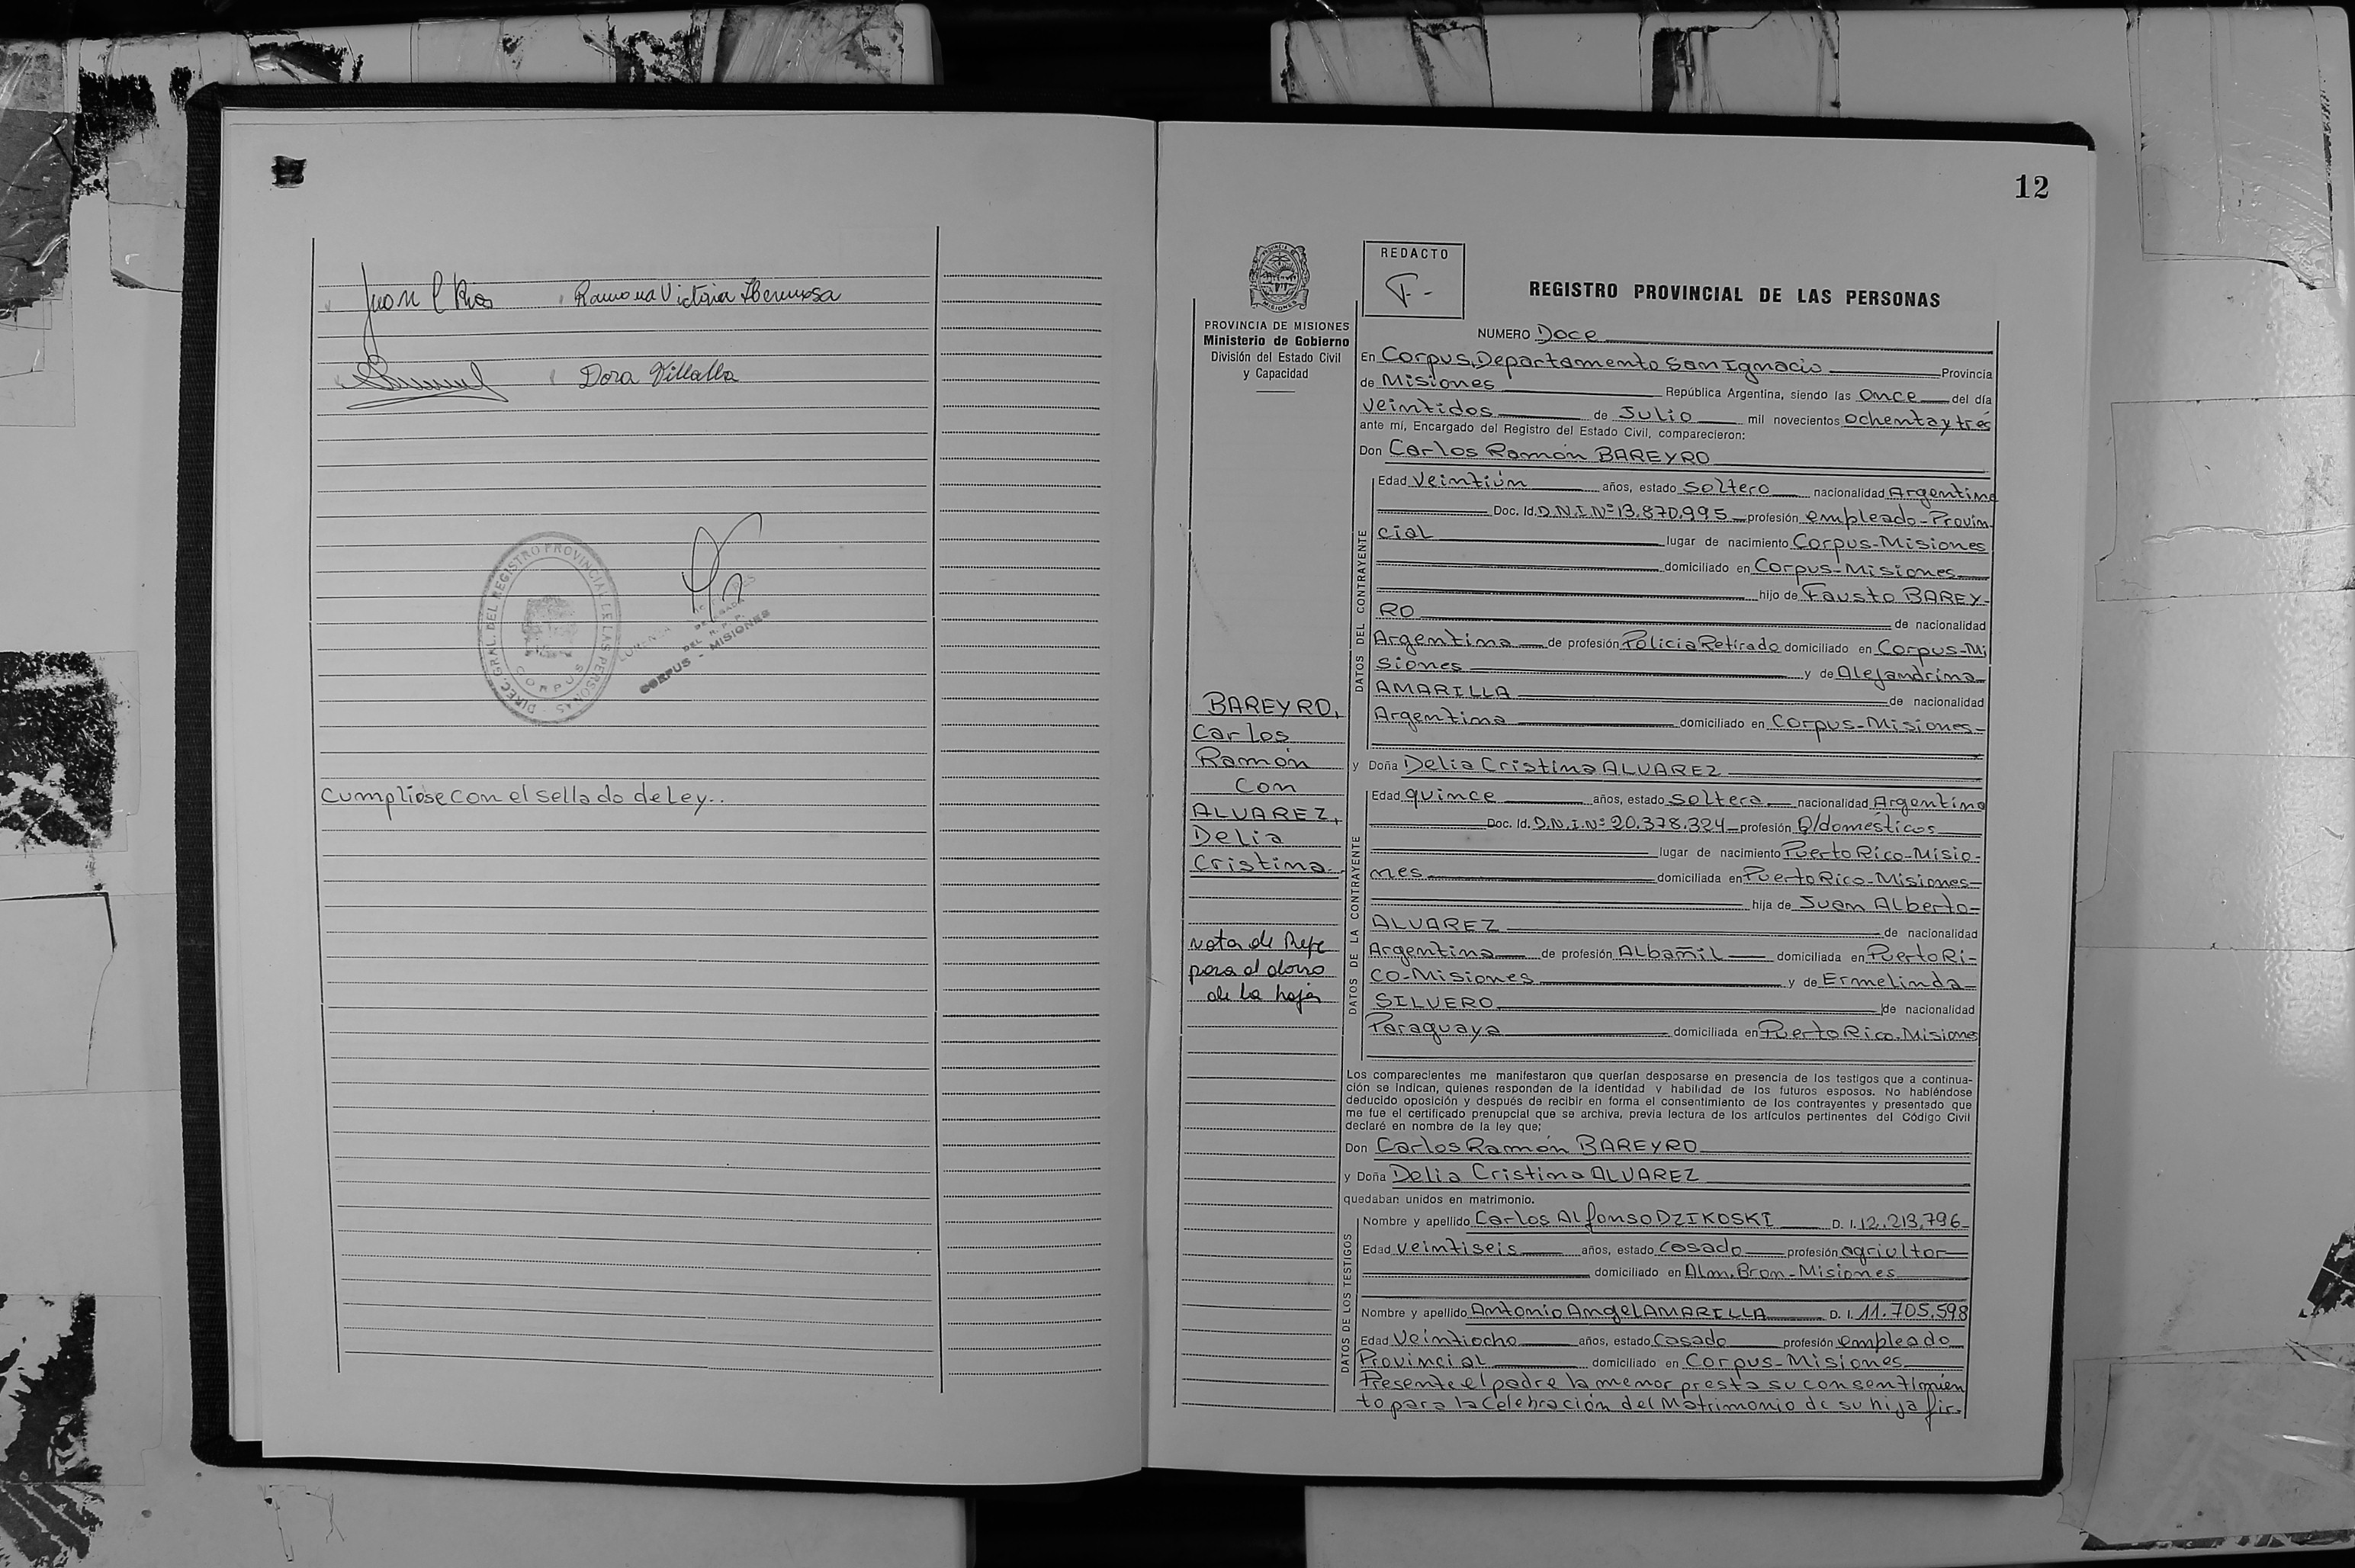 Ramona Victoria Hermosa
Dora Villalba
DIREC. GRAL. DEL REGISTRO PROVINCIAL DE LAS PERSONAS
CORPUS
DEL R. P. P.
CORPUS - MISIONES
Cumpliose con el sellado de Ley..
12
PROVINCIA DE MISIONES
Ministerio de Gobierno
División del Estado Civil
y Capacidad
BAREYRO,
Carlos
Ramón
Con
ALVAREZ,
Delia
Cristina.
nota de Refe
para al dorso
de la hoja
REDACTO
REGISTRO PROVINCIAL DE LAS PERSONAS
NUMERO Doce
En Corpus, Departamento San Ignacio Provincia
de Misiones República Argentina, siendo las once del día
veintidos de Julio mil novecientos ochenta y tres
ante mí, Encargado del Registro del Estado Civil, comparecieron:
Don Carlos Ramón BAREYRO
DATOS DEL CONTRAYENTE
Edad veintiún años, estado soltero nacionalidad Argentina
Doc. Id. D.N.I. Nº 13.870.995 profesión empleado-Provin-
cial lugar de nacimiento Corpus-Misiones
domiciliado en Corpus-Misiones
hijo de Fausto BAREY-
RO de nacionalidad
Argentina de profesión Policia Retirado domiciliado en Corpus-Mi
siones y de Alejandrina
AMARILLA de nacionalidad
Argentina domiciliado en Corpus-Misiones-
y Doña Delia Cristina ALVAREZ
DATOS DE LA CONTRAYENTE
Edad quince años, estado soltera nacionalidad Argentina
Doc. Id. D.N.I. Nº 20.378.324 profesión Q/domésticos
lugar de nacimiento Puerto Rico-Misio-
nes domiciliada en Puerto Rico-Misiones-
hija de Juan Alberto-
ALVAREZ de nacionalidad
Argentina de profesión Albañil domiciliada en Puerto Ri-
co-Misiones y de Ermelinda
SILVERO de nacionalidad
Paraguaya domiciliada en Puerto Rico-Misiones
Los comparecientes me manifestaron que querían desposarse en presencia de los testigos que a continua-
ción se indican, quienes responden de la identidad y habilidad de los futuros esposos. No habiéndose
deducido oposición y después de recibir en forma el consentimiento de los contrayentes y presentado que
me fue el certificado prenupcial que se archiva, previa lectura de los artículos pertinentes del Código Civil
declaré en nombre de la ley que;
Don Carlos Ramón BAREYRO
y Doña Delia Cristina ALVAREZ
quedaban unidos en matrimonio.
DATOS DE LOS TESTIGOS
Nombre y apellido Carlos Alfonso DZIKOSKI D. I. 12.213.796
Edad veintiseis años, estado casado profesión agriultor
domiciliado en Alm. Bron-Misiones
Nombre y apellido Antonio Angel AMARILLA D. I. 11.705.598
Edad veintiocho años, estado casado profesión empleado
Provincial domiciliado en Corpus-Misiones
Presente el padre la menor presta su consentimien
to para la celebración del Matrimonio de su hija fir-